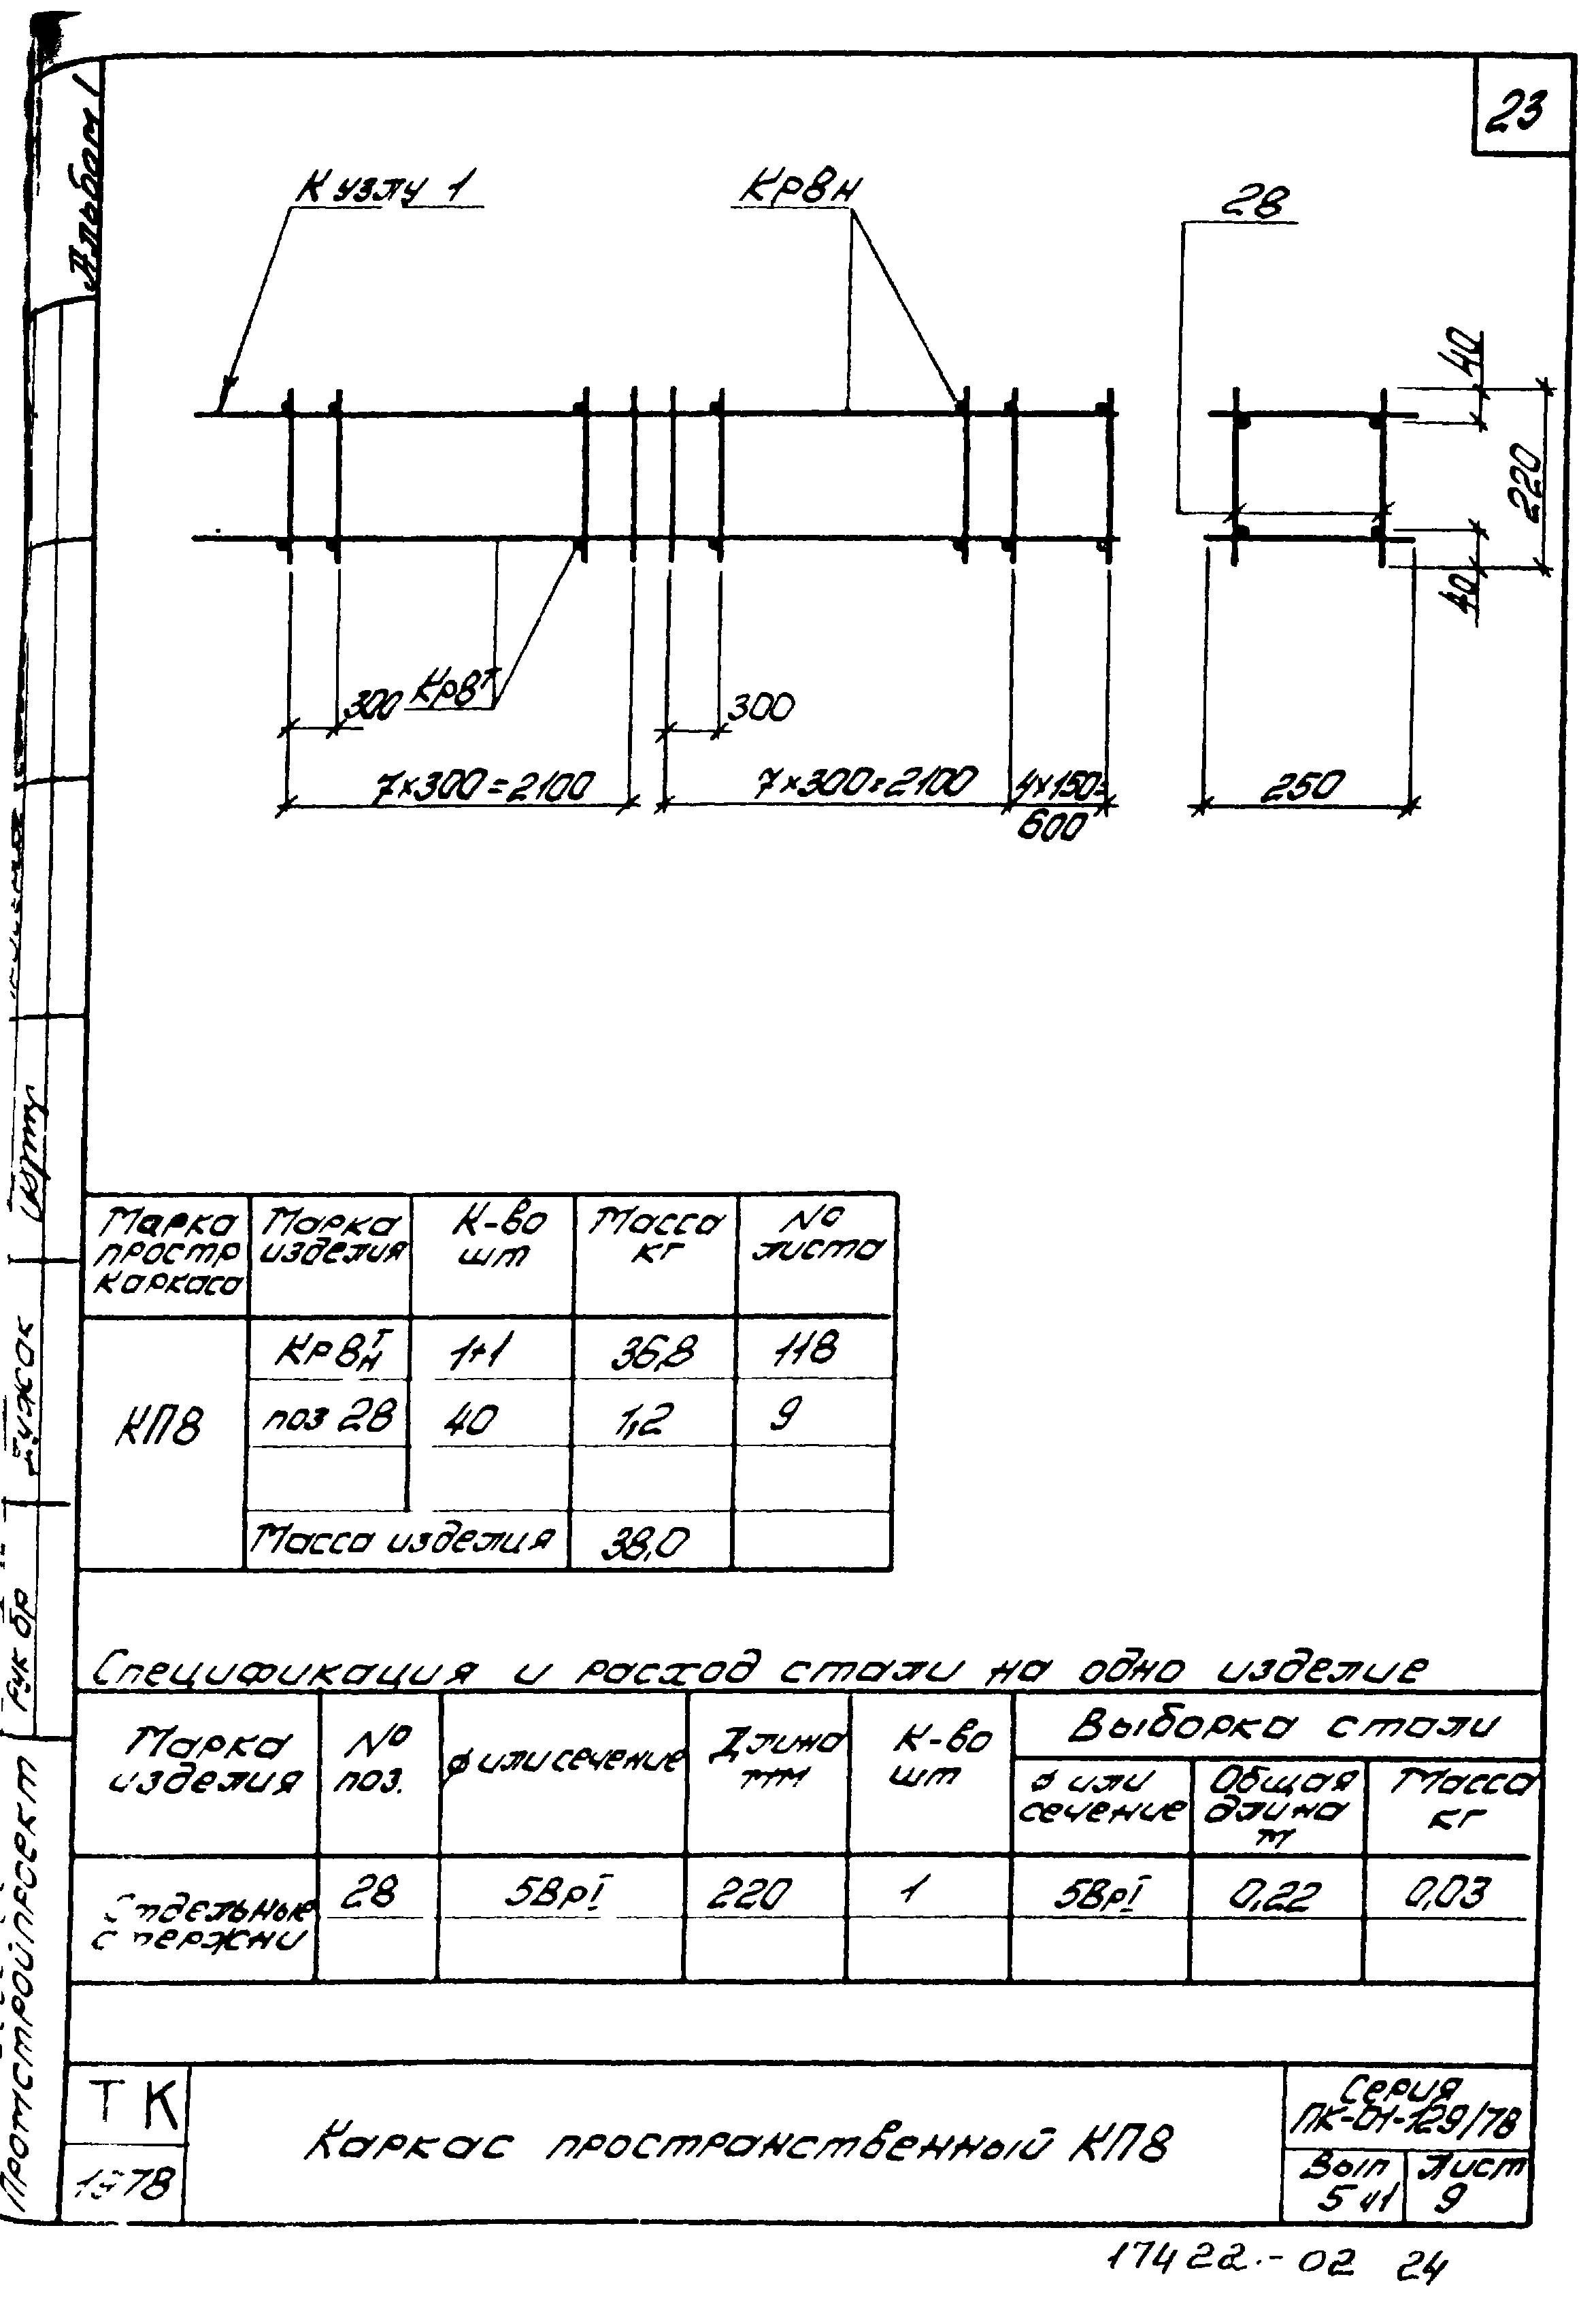 Альбом 1
23
К узлу 1
Кр8н
28
40
220
40
300
Кр8т
300
7×300=2100
7×300=2100
4×150=
600
250
Марка простр каркаса
Марка изделия
К-во шт
Масса кг
№ листа
КП8
Кр8тн
1+1
36,8
118
поз 28
40
1,2
9
Масса изделия
38,0
Спецификация и расход стали на одно изделие
Марка изделия
№ поз.
ø или сечение
Длина мм
К-во шт
Выборка стали
ø или сечение
Общая длина м
Масса кг
Отдельные стержни
28
5ВрI
220
1
5ВрI
0,22
0,03
Рук бр
Промстройпроект
ТК
1978
Каркас пространственный КП8
Серия
ПК-01-129/78
Вып
5 ч1
Лист
9
17422-02 24